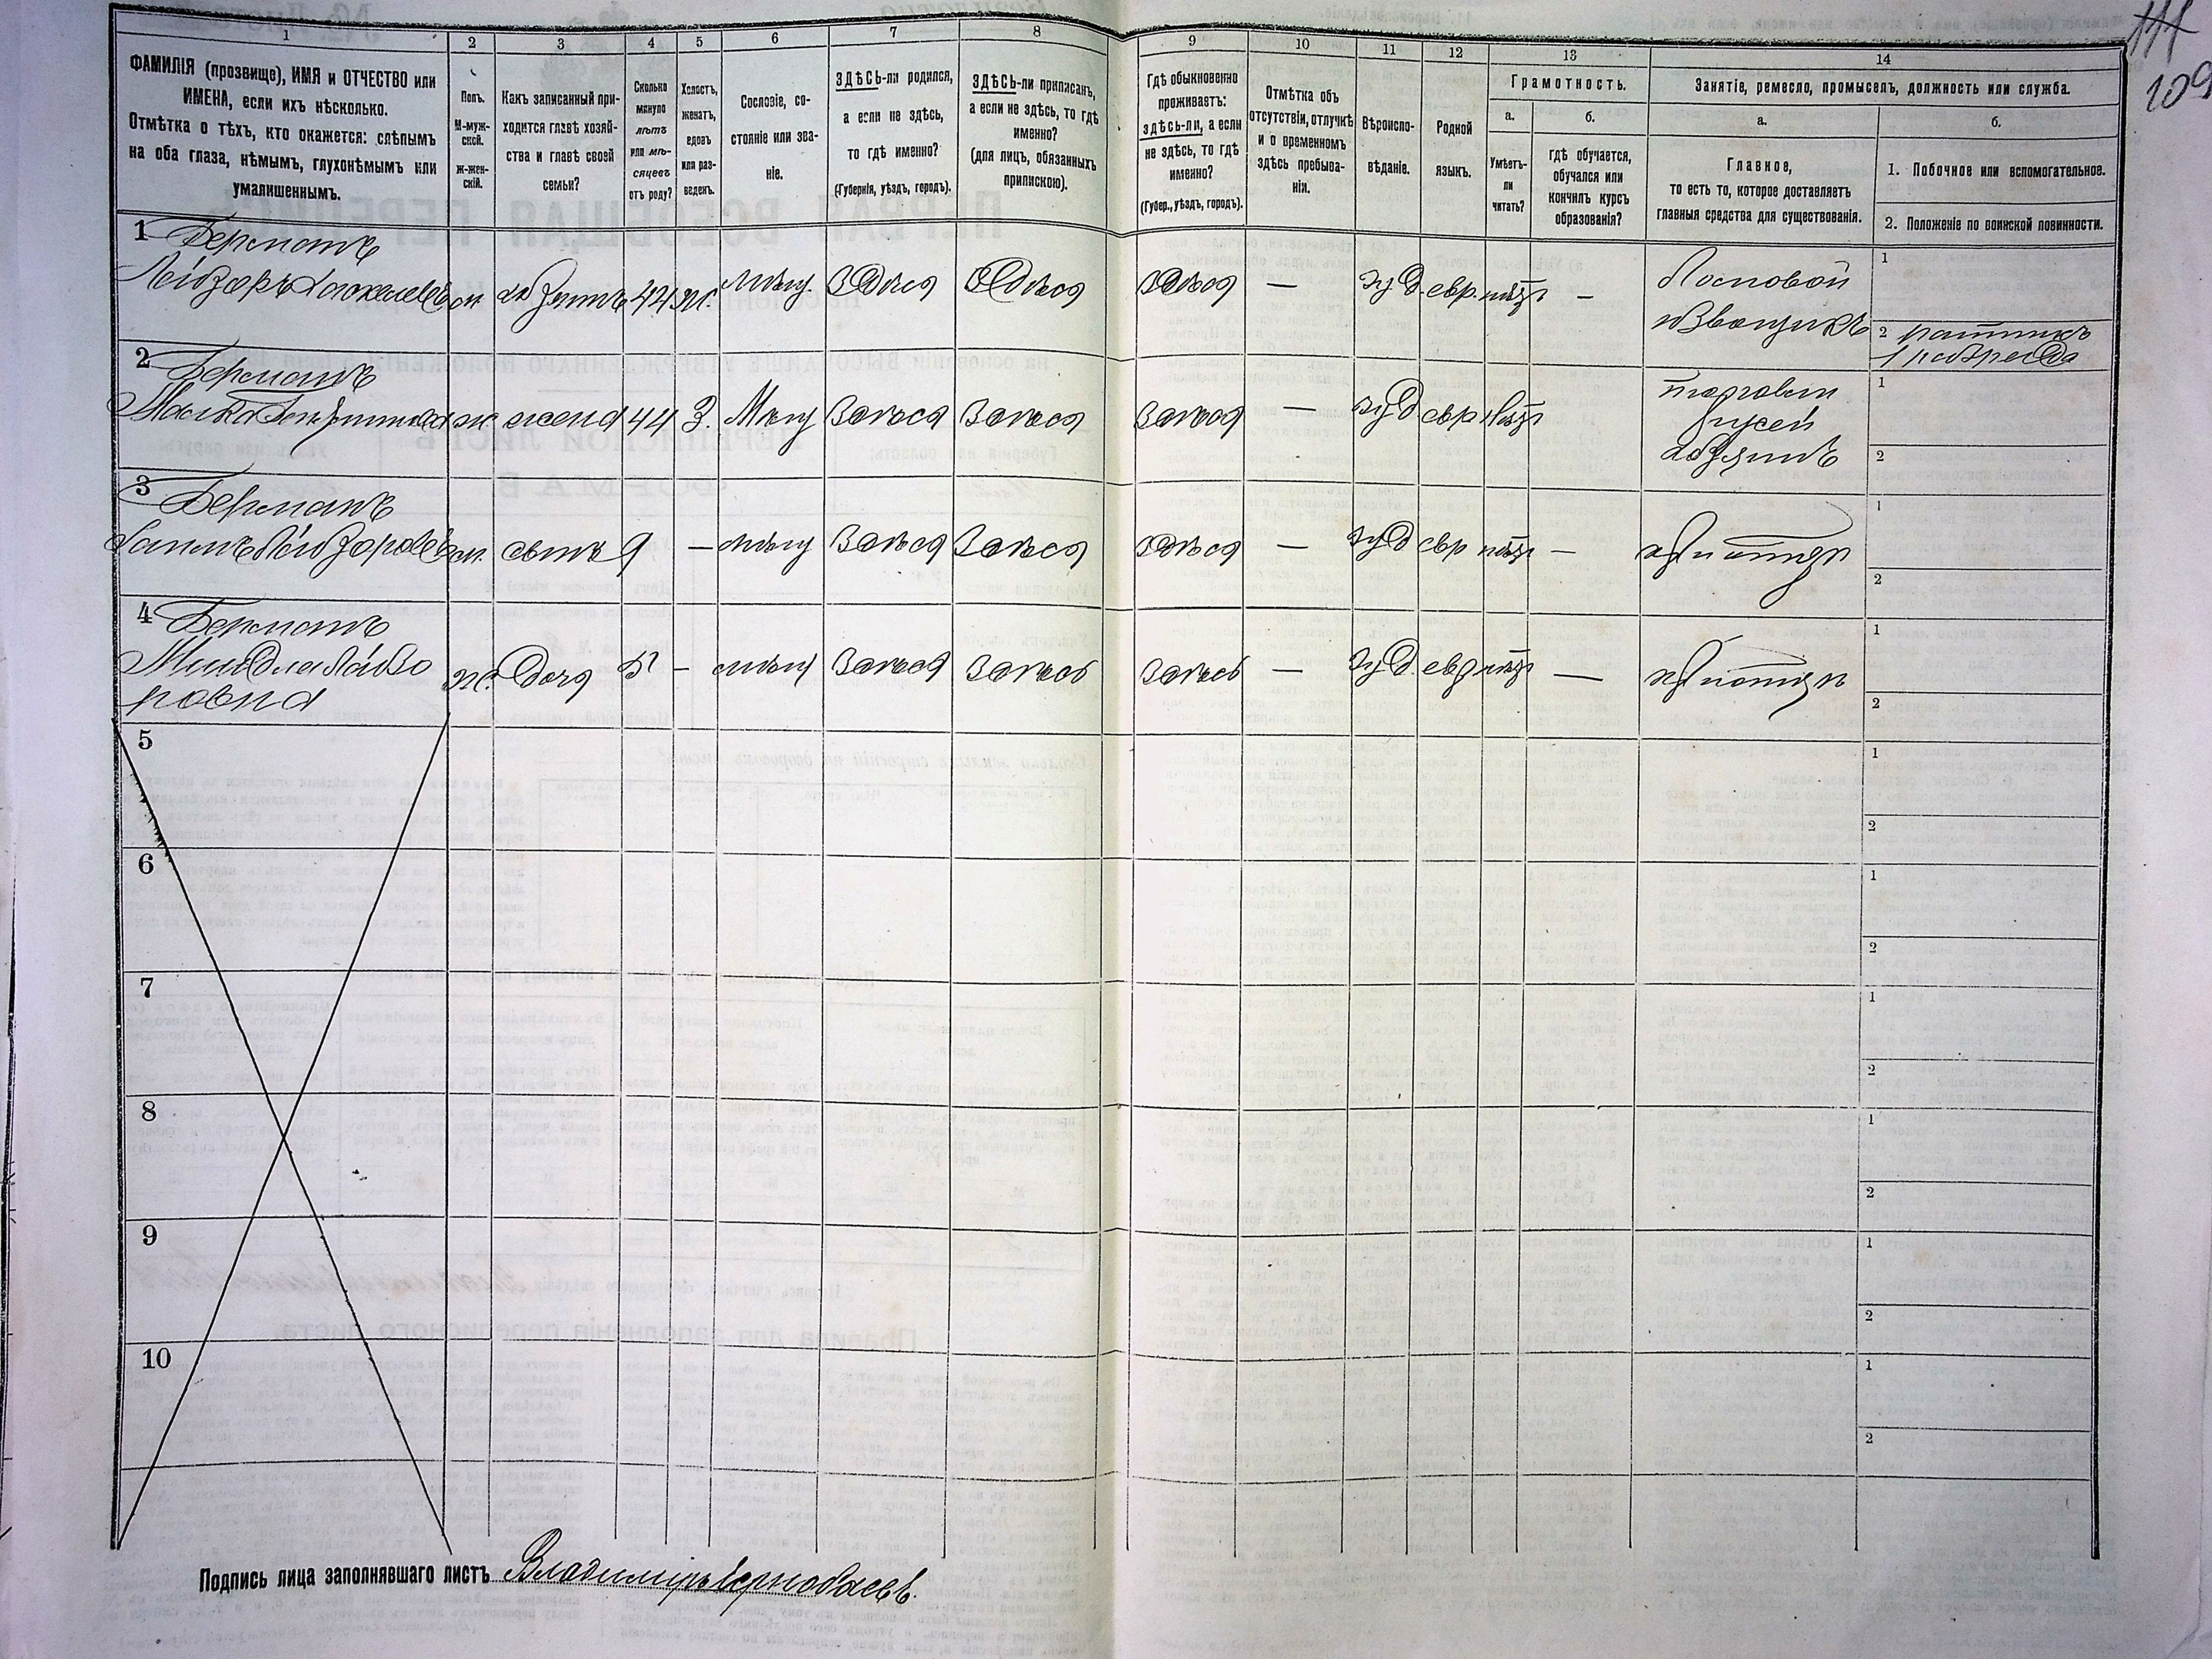 111
109
1 2 3 4 5 6 7 8 9 10 11 12 13 14
ФАМИЛІЯ (прозвище), ИМЯ и ОТЧЕСТВО или
ИМЕНА, если ихъ нѣсколько.
Отмѣтка о тѣхъ, кто окажется: слѣпымъ
на оба глаза, нѣмымъ, глухонѣмымъ или
умалишеннымъ.
Полъ.
М-муж-
ской.
Ж-жен-
скій.
Какъ записанный при-
ходится главѣ хозяй-
ства и главѣ своей
семьи?
Сколько
минуло
лѣтъ
или мѣ-
сяцевъ
отъ роду?
Холостъ,
женатъ,
вдовъ
или раз-
веденъ.
Сословіе, со-
стояніе или зва-
ніе.
ЗДѢСЬ-ли родился,
а если не здѣсь,
то гдѣ именно?
(Губернія, уѣздъ, городъ).
ЗДѢСЬ-ли приписанъ,
а если не здѣсь, то гдѣ
именно?
(для лицъ, обязанныхъ
припискою).
Гдѣ обыкновенно
проживаетъ:
здѣсь-ли, а если
не здѣсь, то гдѣ
именно?
(Губер., уѣздъ, городъ).
Отмѣтка объ
отсутствіи, отлучкѣ
и о временномъ
здѣсь пребыва-
ніи.
Вѣроиспо-
вѣданіе.
Родной
языкъ.
Грамотность.
а.
Умѣетъ-
ли
читать?
б.
гдѣ обучается,
обучался или
кончилъ курсъ
образованія?
Занятіе, ремесло, промыселъ, должность или служба.
а.
Главное,
то есть то, которое доставляетъ
главныя средства для существованія.
б.
1. Побочное или вспомогательное.
2. Положеніе по воинской повинности.
1 Берманъ
Лейзоръ м. 44 ж. мѣщ. Здѣся Здѣся Здѣся — іуд. евр. нѣтъ —
извощикъ
1
2 ратникъ
1 разряда
2 Берманъ
Малка ж жена 44 З. Мѣщ Здѣся Здѣся Здѣся — іуд евр нѣтъ
торговли
1
2
3 Берманъ
Лейзоровъ м. сынъ 9 — мѣщ Здѣся Здѣся Здѣся — іуд евр нѣтъ — при отцѣ
1
2
4 Берманъ
Миндля Лейзо
ровна ж. дочя 5 — мѣщ Здѣся Здѣсь Здѣсь — іуд. евр нѣтъ — при отцѣ
1
2
5
1
2
6
1
2
7
1
2
8
1
2
9
1
2
10
1
2
Подпись лица заполнявшаго листъ Владимиръ Чернобаевъ.